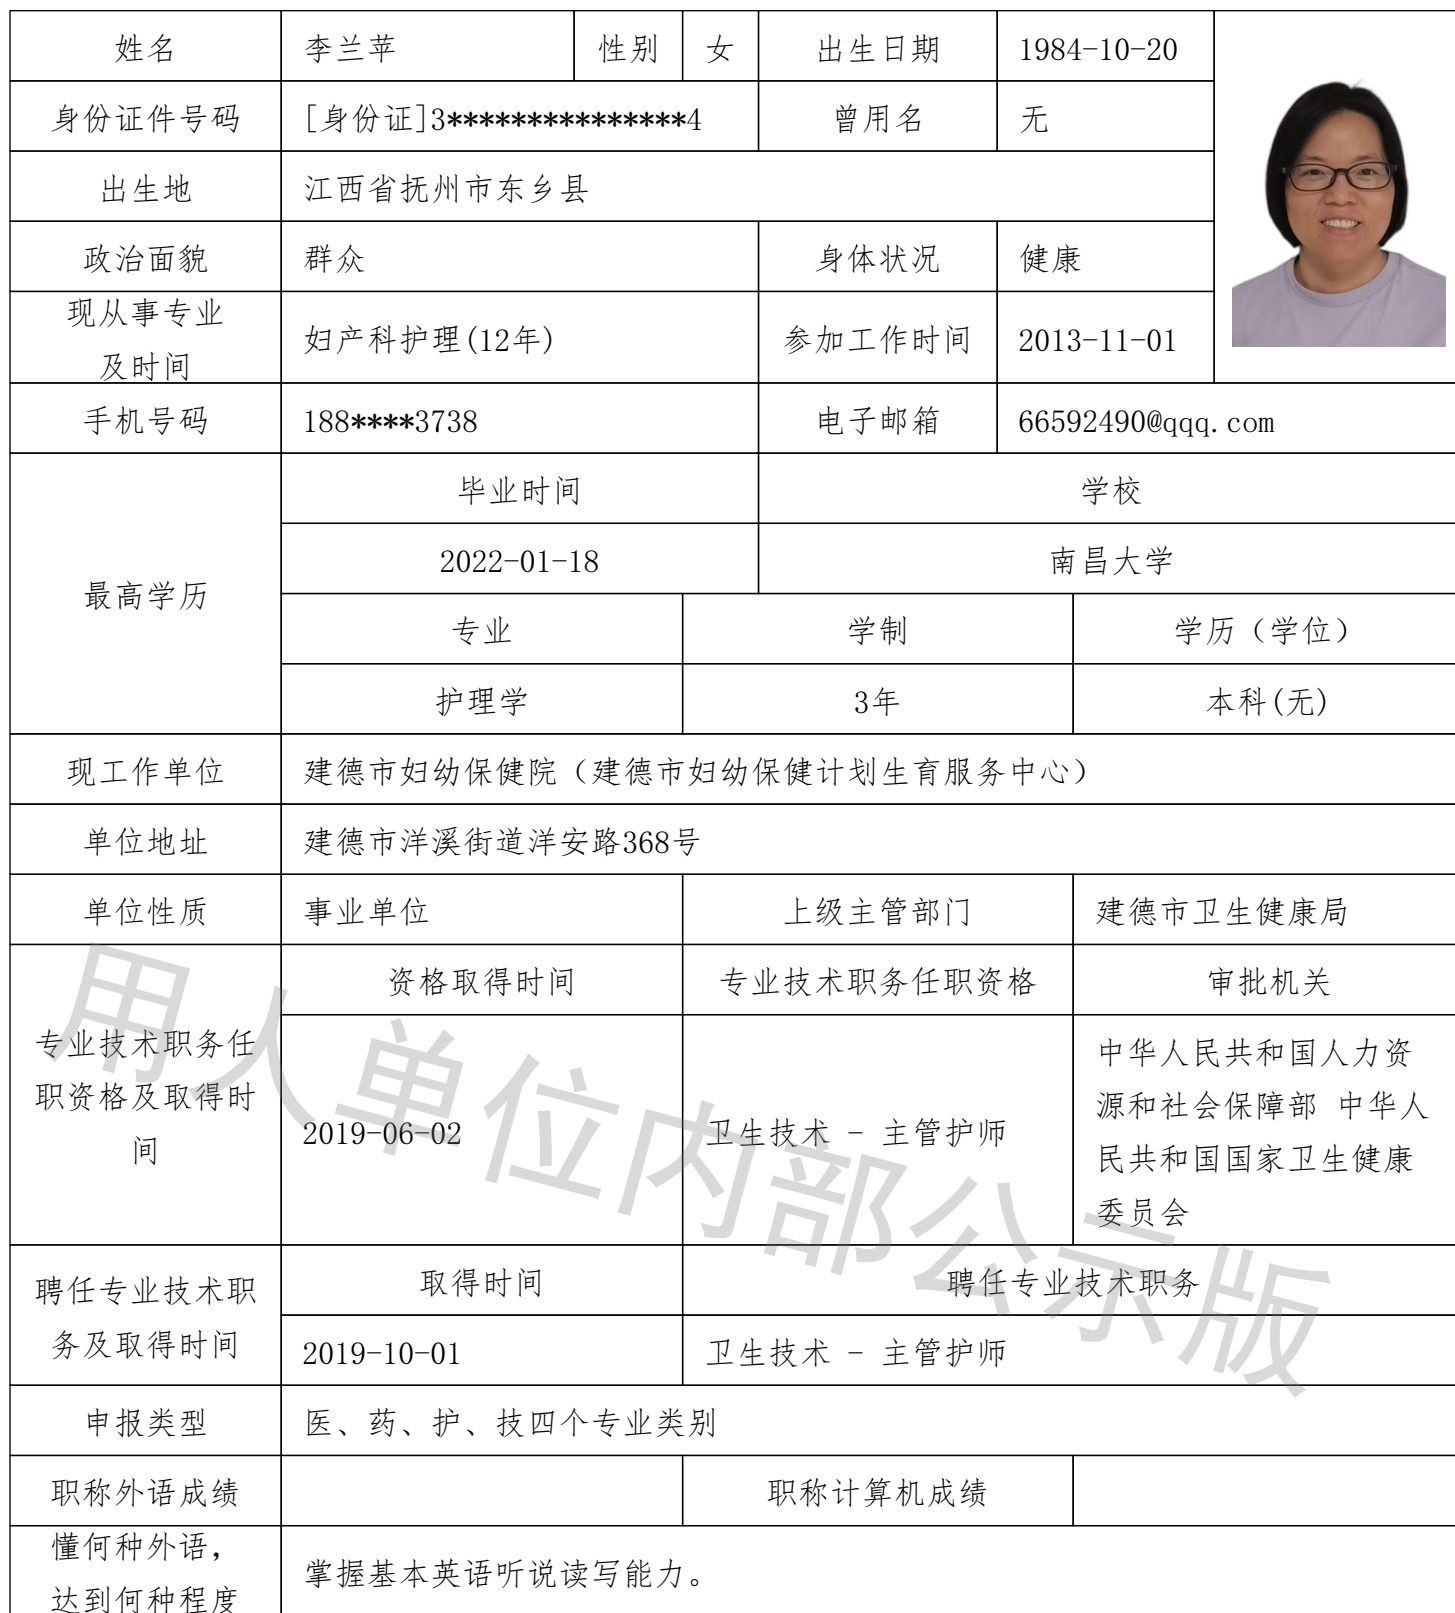 姓名 李兰苹 性别 女 出生日期 1984-10-20
身份证件号码 [身份证]3***************4 曾用名 无
出生地 江西省抚州市东乡县
政治面貌 群众 身体状况 健康
现从事专业
及时间
妇产科护理(12年) 参加工作时间 2013-11-01
手机号码 188****3738 电子邮箱 66592490@qqq.com
最高学历
毕业时间 学校
2022-01-18 南昌大学
专业 学制 学历（学位）
护理学 3年 本科(无)
现工作单位 建德市妇幼保健院（建德市妇幼保健计划生育服务中心）
单位地址 建德市洋溪街道洋安路368号
单位性质 事业单位 上级主管部门 建德市卫生健康局
专业技术职务任
职资格及取得时
间
资格取得时间 专业技术职务任职资格 审批机关
2019-06-02 卫生技术 - 主管护师
中华人民共和国人力资
源和社会保障部 中华人
民共和国国家卫生健康
委员会
聘任专业技术职
务及取得时间
取得时间 聘任专业技术职务
2019-10-01 卫生技术 - 主管护师
申报类型 医、药、护、技四个专业类别
职称外语成绩 职称计算机成绩
懂何种外语，
达到何种程度
掌握基本英语听说读写能力。
用人单位内部公示版